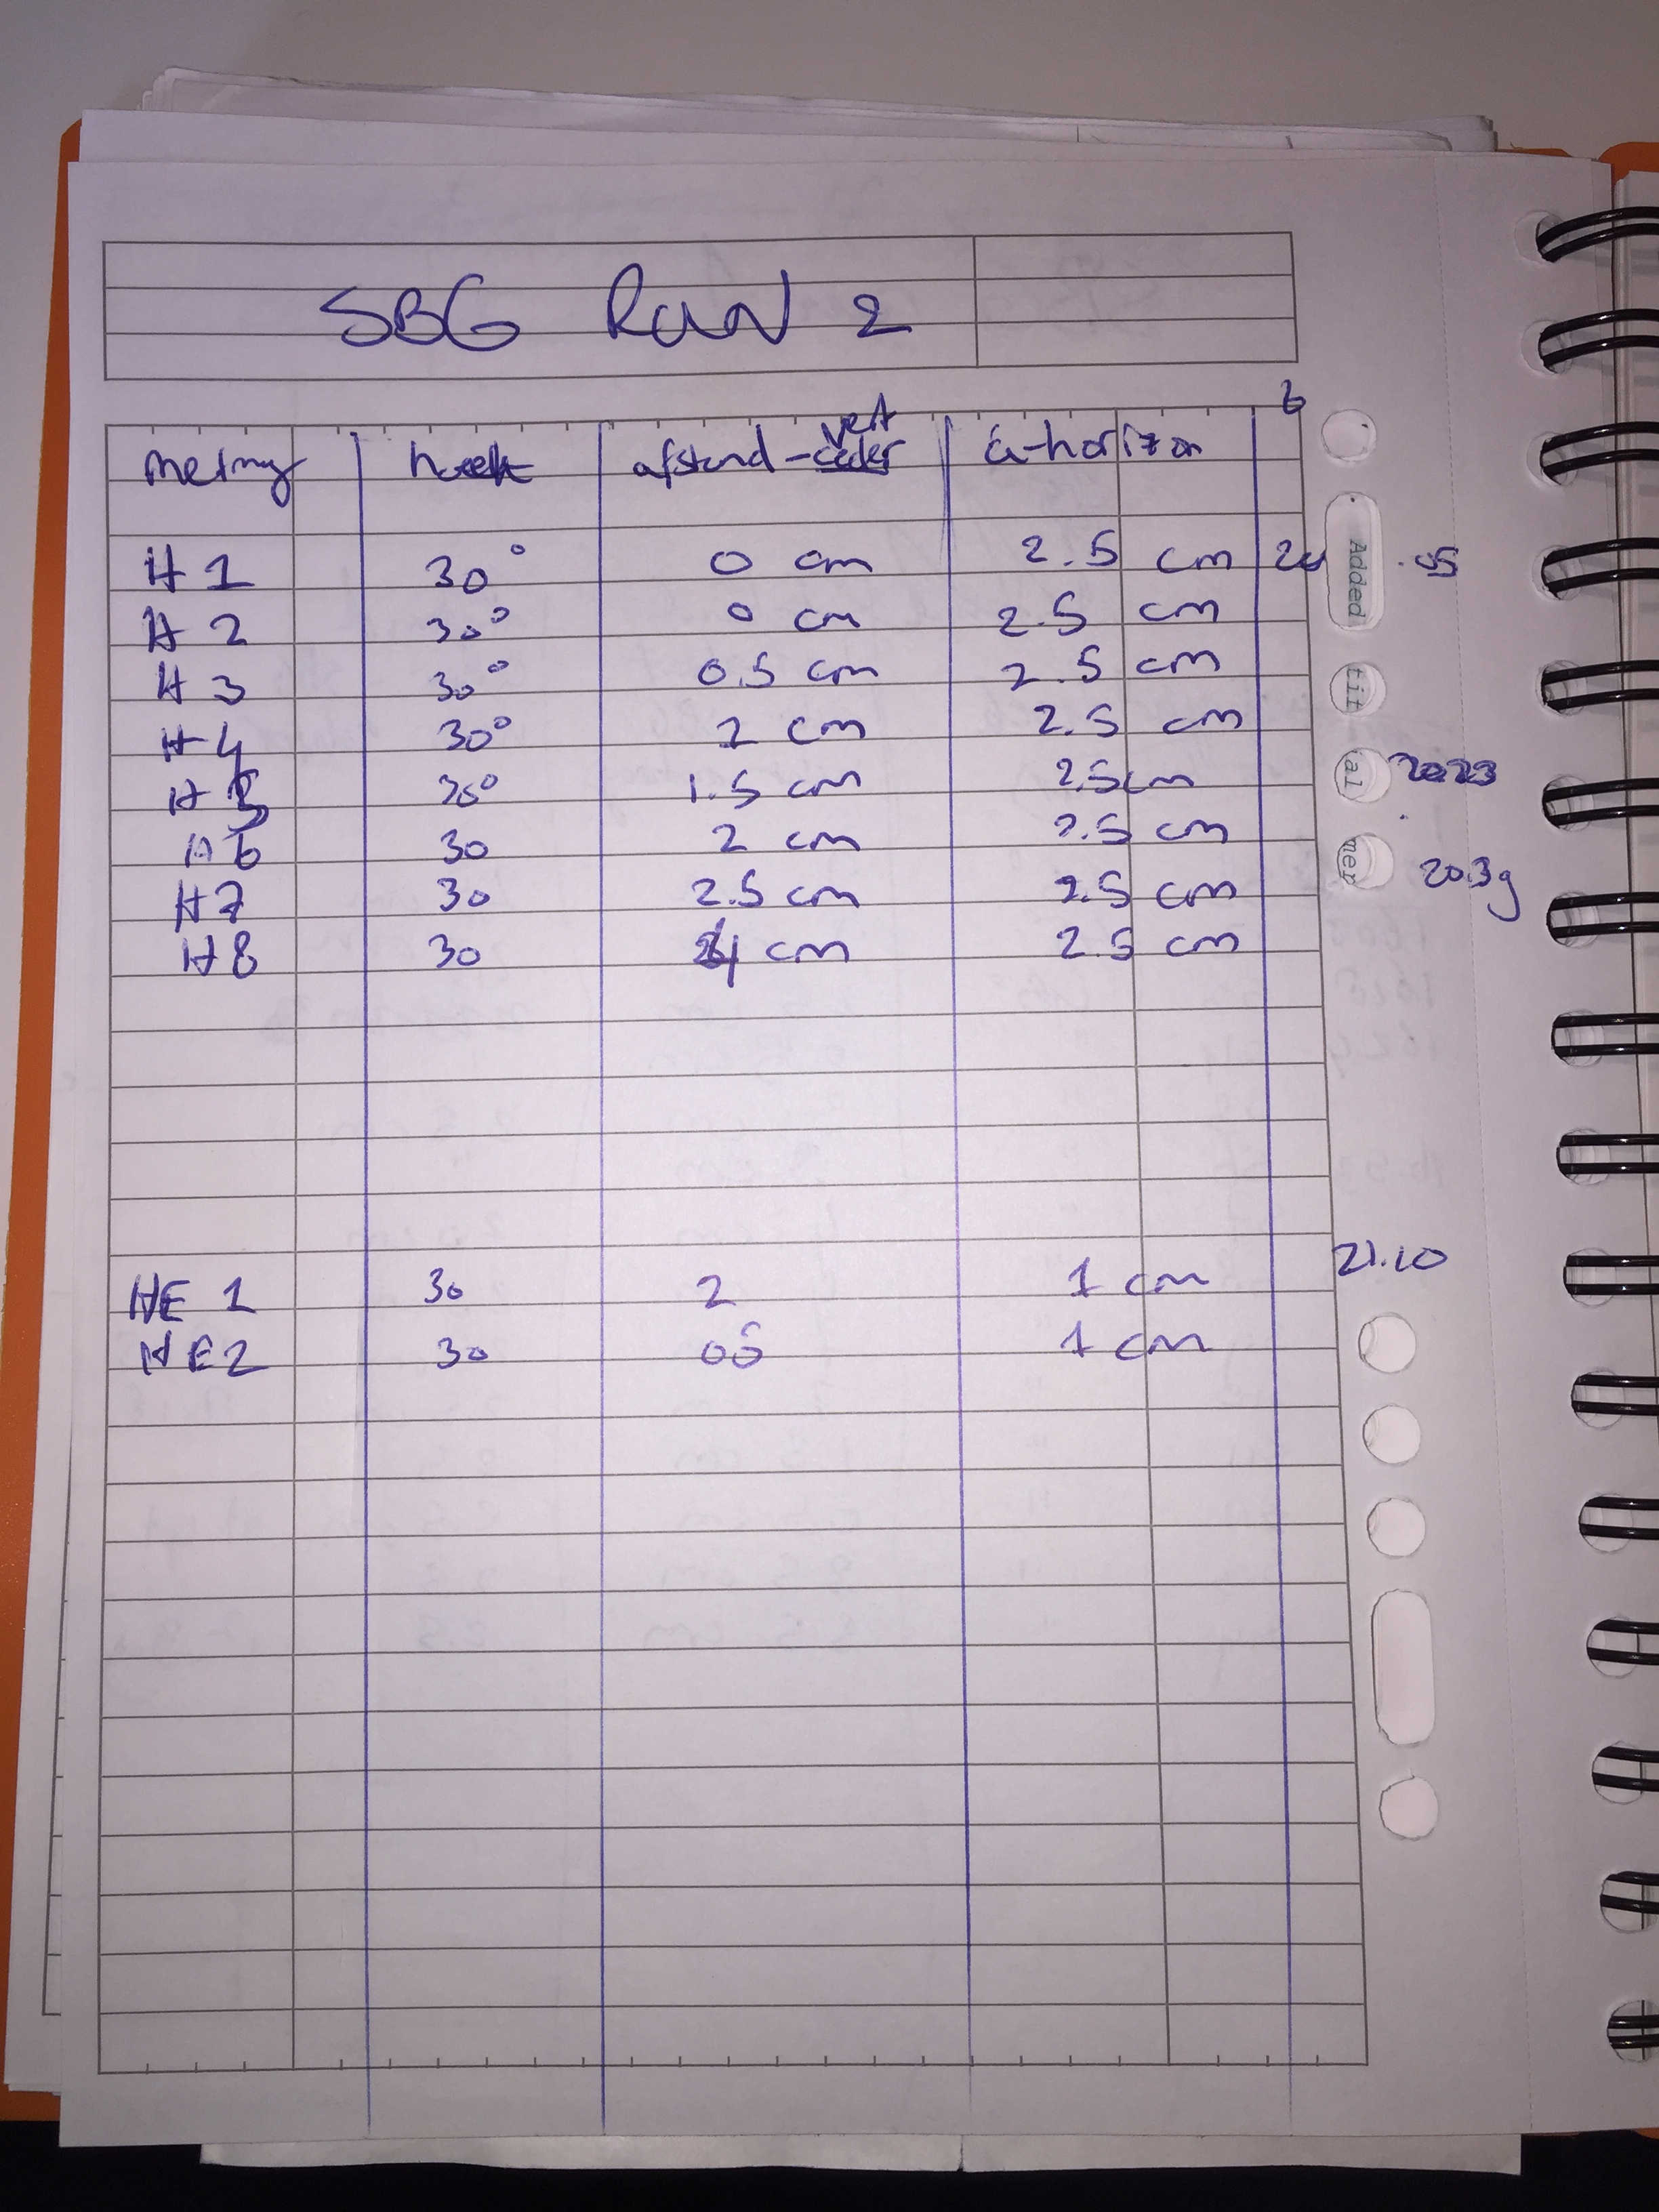 SBG RUN 2
6
vert
meting hoek afstand - a-horizon
H 1 30° 0 cm 2.5 cm 20 .05
H 2 30° 0 cm 2.5 cm
H 3 30° 0.5 cm 2.5 cm
H 4 30° 1 cm 2.5 cm
H 5 30° 1.5 cm 2.5cm 2023
H 6 30 2 cm 2.5 cm
H 7 30 2.5 cm 2.5 cm 20.39
H 8 30 4 cm 2.5 cm
HE 1 30 2 1 cm 21.10
HE 2 30 05 1 cm
Added
tit
al
ner